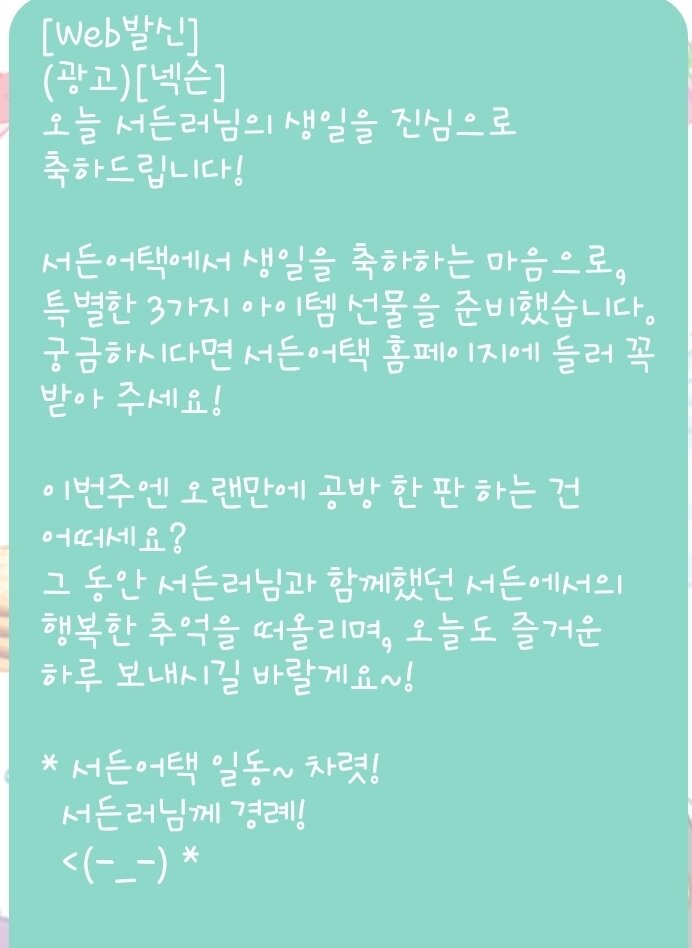 [Web발신]
(광고)[넥슨]
오늘 서든러님의 생일을 진심으로
축하드립니다!
서든어택에서 생일을 축하하는 마음으로,
특별한 3가지 아이템 선물을 준비했습니다.
궁금하시다면 서든어택 홈페이지에 들러 꼭
받아 주세요!
이번주엔 오랜만에 공방 한 판 하는 건
어떠세요?
그 동안 서든러님과 함께했던 서든에서의
행복한 추억을 떠올리며, 오늘도 즐거운
하루 보내시길 바랄게요~!
* 서든어택 일동~ 차렷!
서든러님께 경례!
<(-_-) *